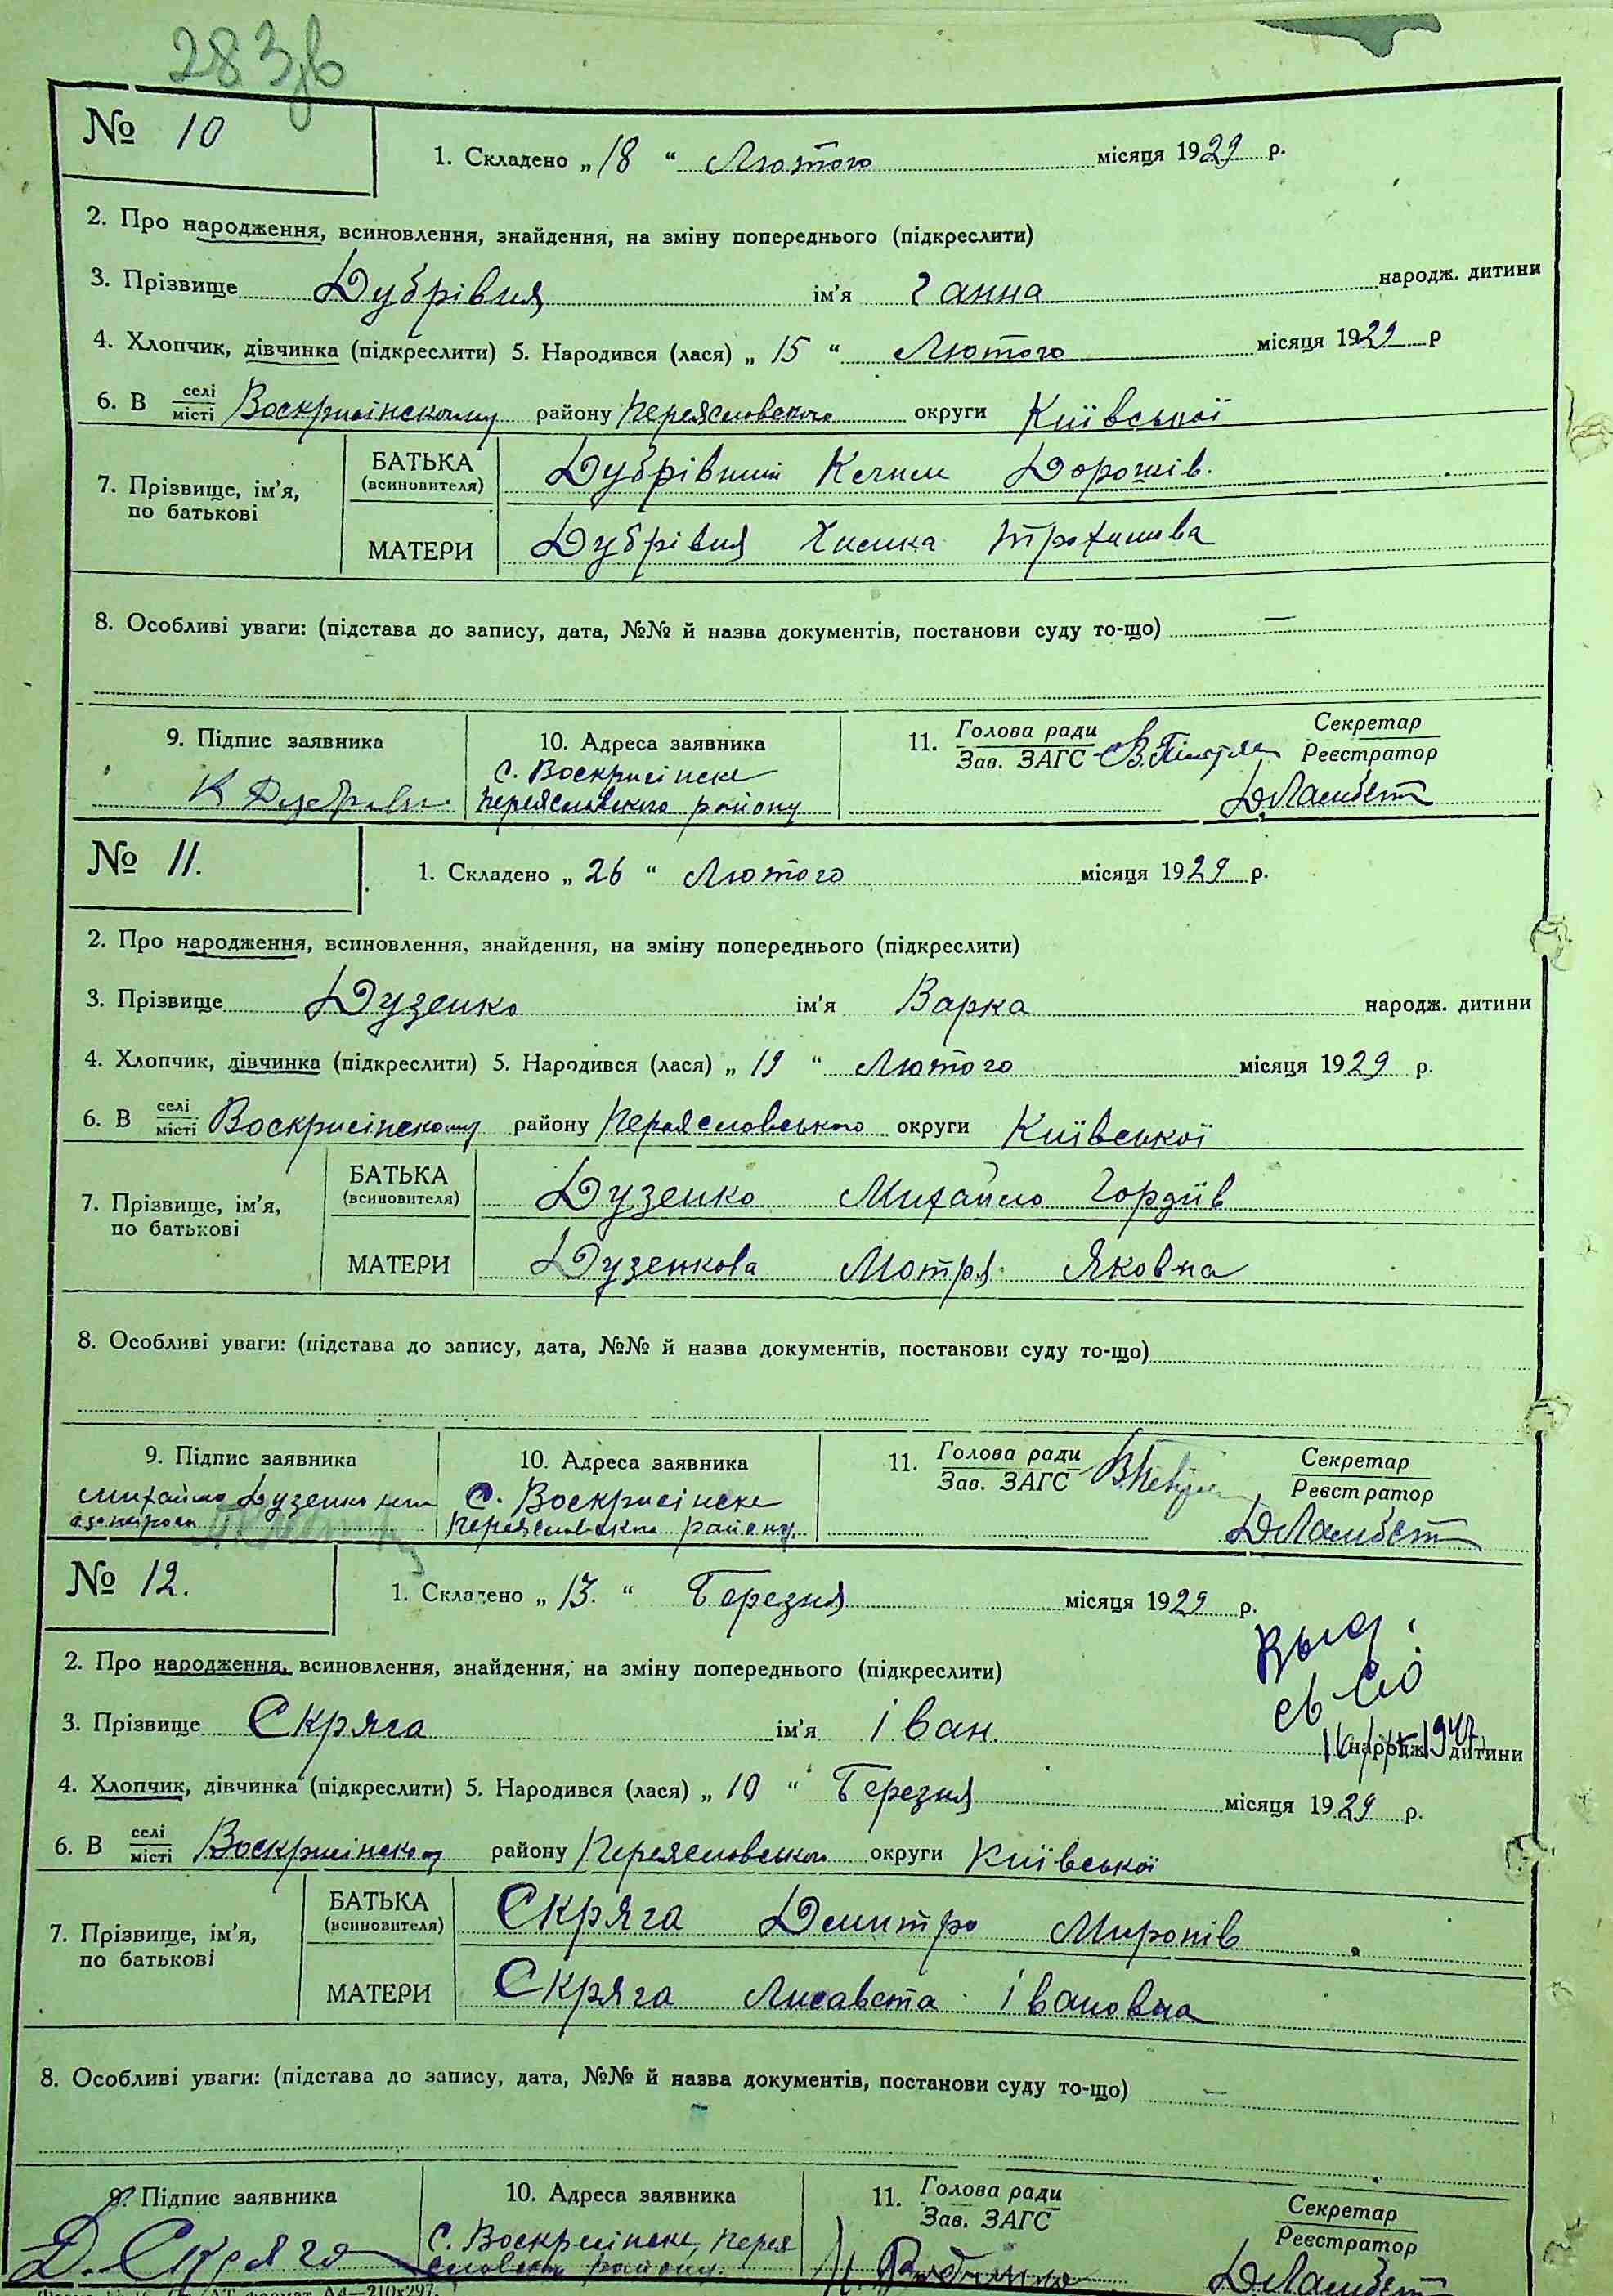 283зв
№ 10
1. Складено „18“ Лютого місяця 1929 р.
2. Про народження, всиновлення, знайдення, на зміну попереднього (підкреслити)
3. Прізвище Дубрівня ім'я Ганна народж. дитини
4. Хлопчик, дівчинка (підкреслити) 5. Народився (лася) „15“ Лютого місяця 1929 р
6. В селі місті Воскрисінському району Переяславського округи Київської
7. Прізвище, ім'я, по батькові БАТЬКА (всиновителя) Дубрівний Дорошів.
МАТЕРИ Дубрівня Трохимова
8. Особливі уваги: (підстава до запису, дата, №№ й назва документів, постанови суду то-що) —
9. Підпис заявника 10. Адреса заявника 11. Голова ради Зав. ЗАГС Секретар Реєстратор
С. Воскрисінске
Переяславского району
№ 11.
1. Складено „26“ Лютого місяця 1929 р.
2. Про народження, всиновлення, знайдення, на зміну попереднього (підкреслити)
3. Прізвище Дузенко ім'я Варка народж. дитини
4. Хлопчик, дівчинка (підкреслити) 5. Народився (лася) „19“ Лютого місяця 1929 р.
6. В селі місті Воскрисінскому району Переяславського округи Київської
7. Прізвище, ім'я, по батькові БАТЬКА (всиновителя) Дузенко Михайло Гордіїв
МАТЕРИ Дузенкова Мотря Яковна
8. Особливі уваги: (підстава до запису, дата, №№ й назва документів, постанови суду то-що)
9. Підпис заявника 10. Адреса заявника 11. Голова ради Зав. ЗАГС Секретар Реєстратор
Михайло Дузенко С. Воскрисінске
Переяславского району.
№ 12.
1. Складено „13.“ Березня місяця 1929 р.
2. Про народження, всиновлення, знайдення, на зміну попереднього (підкреслити)
3. Прізвище Скряга ім'я Іван. народж. дитини
4. Хлопчик, дівчинка (підкреслити) 5. Народився (лася) „10“ Березня місяця 1929 р.
6. В селі місті Воскрисінском району Переяславском округи Київської
7. Прізвище, ім'я, по батькові БАТЬКА (всиновителя) Скряга Дмитро Миронів
МАТЕРИ Скряга Лисавета Івановна
8. Особливі уваги: (підстава до запису, дата, №№ й назва документів, постанови суду то-що) —
9. Підпис заявника 10. Адреса заявника 11. Голова ради Зав. ЗАГС Секретар Реєстратор
Д. Скряга С. Воскресінске, Перея
району.